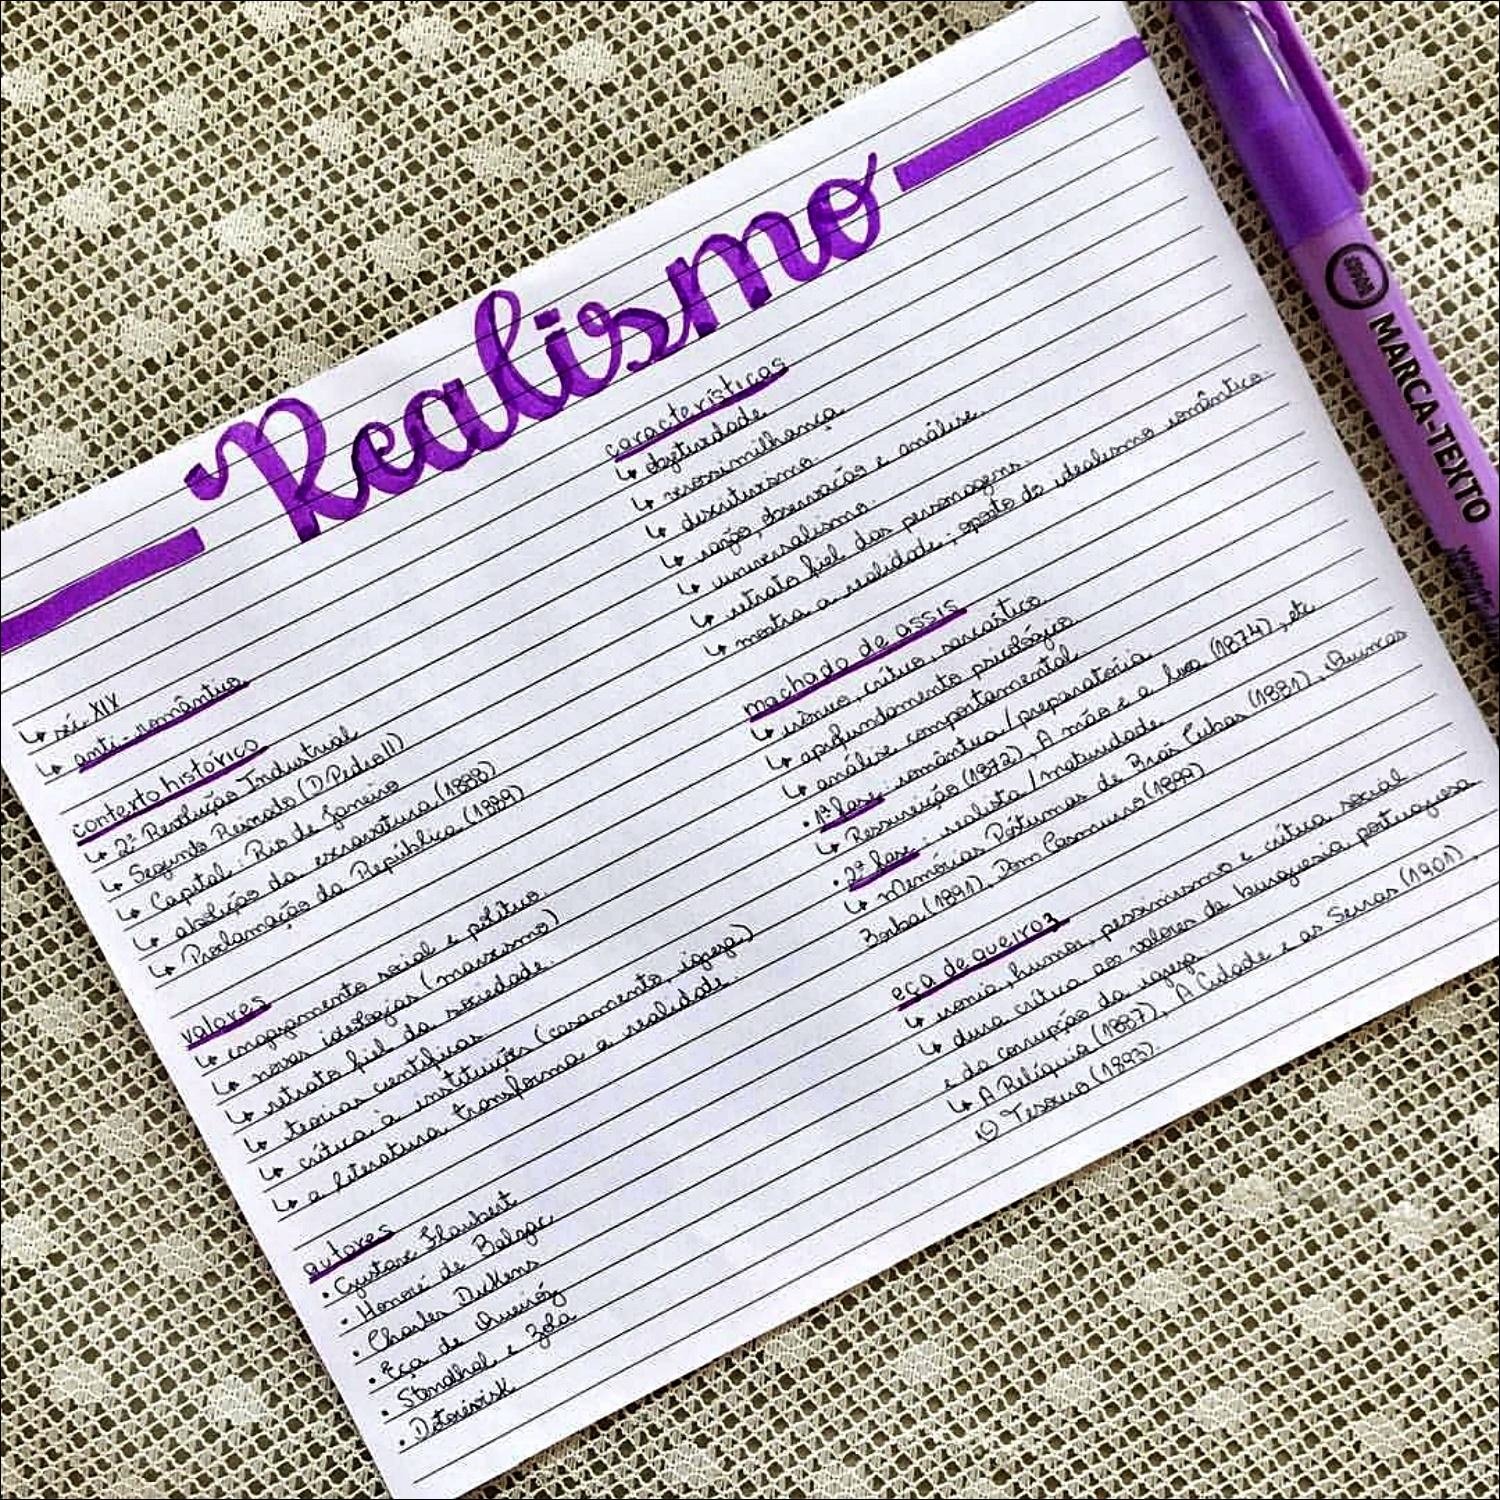 Realismo
↳ séc. XIX
↳ anti-romântico
contexto histórico
↳ 2ª Revolução Industrial
↳ Segundo Reinado (D. Pedro II)
↳ Capital: Rio de Janeiro
↳ abolição da escravatura (1888)
↳ Proclamação da República (1889)
valores
↳ engajamento social e político.
↳ novas ideologias (marxismo)
↳ retrato fiel da sociedade.
↳ teorias científicas
↳ crítica à instituições (casamento, igreja)
↳ a literatura transforma a realidade.
autores
• Gustave Flaubert
• Honoré de Balzac
• Charles Dickens
• Eça de Queiróz
• Stendhal e Zola
características
↳ objetividade
↳ verossimilhança
↳ descritivismo.
↳ razão, observação e análise.
↳ universalismo.
↳ retrato fiel das personagens.
↳ mostra a realidade; oposto do idealismo romântico.
machado de assis
↳ irônico, crítico, sarcástico
↳ aprofundamento psicológico
↳ análise comportamental
• 1ª fase: romântica/preparatória
↳ Ressureição (1872), A mão e a luva (1874), etc
• 2ª fase: realista/maturidade
↳ Memórias Póstumas de Brás Cubas (1881), Quincas
Borba (1891), Dom Casmurro (1899)
eça de queiroz
↳ ironia, humor, pessimismo e crítica social
↳ dura crítica aos valores da burguesia portuguesa
e da corrupção da igreja
↳ A Relíquia (1887), A Cidade e as Serras (1901),
O Tesouro (1893).
MARCA-TEXTO